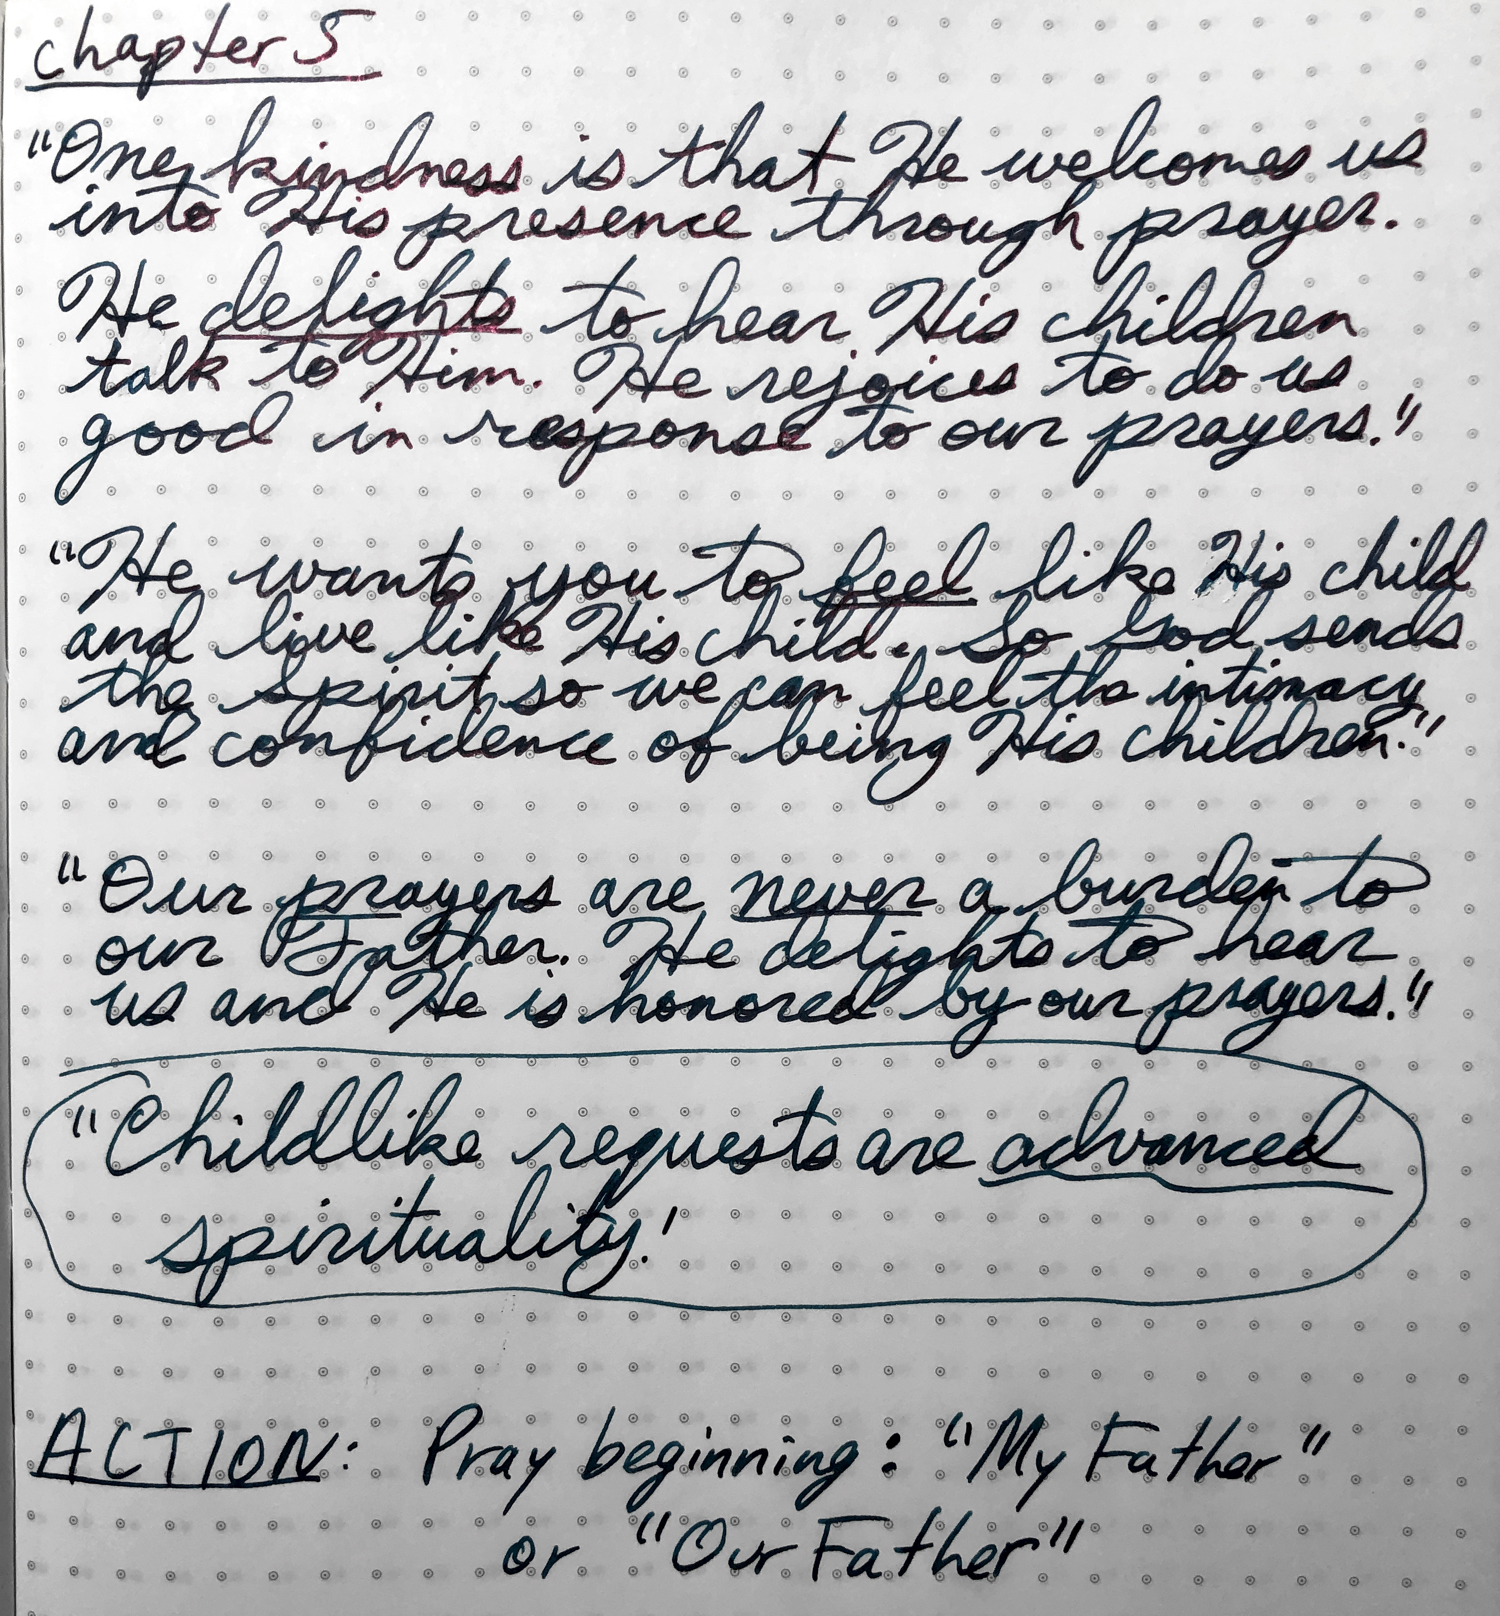 chapter 5
"One kindness is that He welcomes us
into His presence through prayer.
He delights to hear His children
talk to Him. He rejoices to do us
good in response to our prayers."
"He wants you to feel like His child
and live like His child. So God sends
the Spirit so we can feel the intimacy
and confidence of being His children."
"Our prayers are never a burden to
our Father. He delights to hear
us and He is honored by our prayers."
"Childlike requests are advanced
spirituality."
ACTION: Pray beginning: "My Father"
or "Our Father"